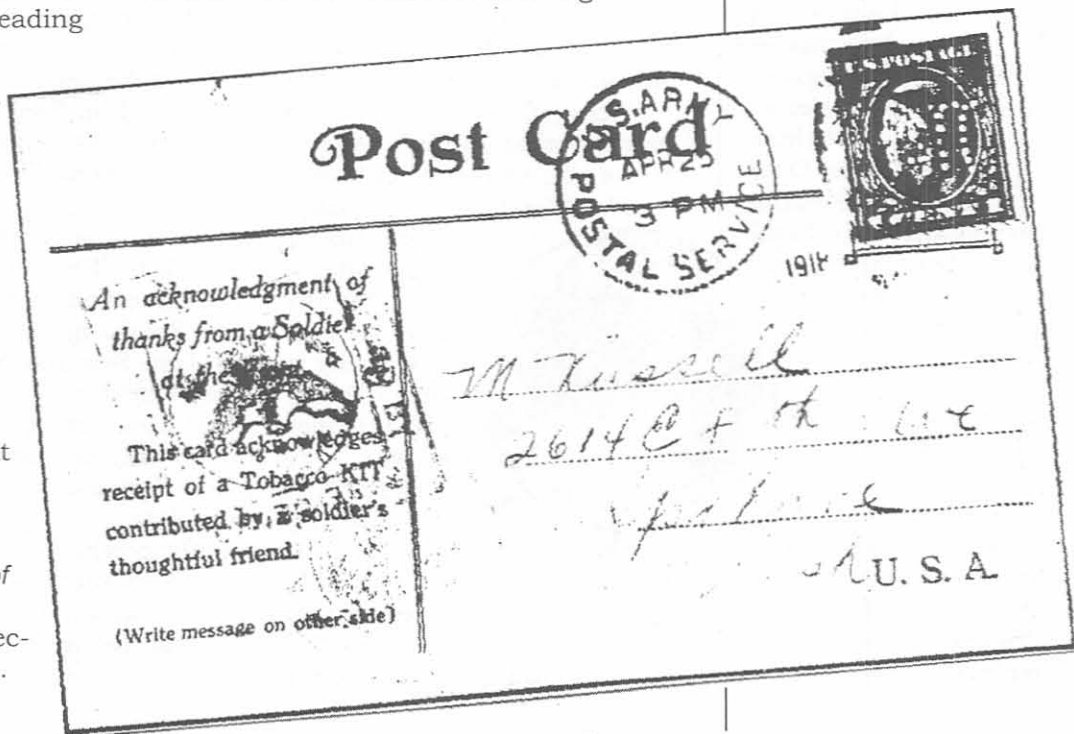 eading
Post Card
U.S. ARMY
APR 25
3 PM
POSTAL SERVICE
U.S. POSTAGE
191
An acknowledgment of
thanks from a Soldier
at the
This card acknowledges
receipt of a Tobacco KIT
contributed by a soldier's
thoughtful friend.
(Write message on other side)
M Russell
2614 E th
U. S. A.
of
ec-